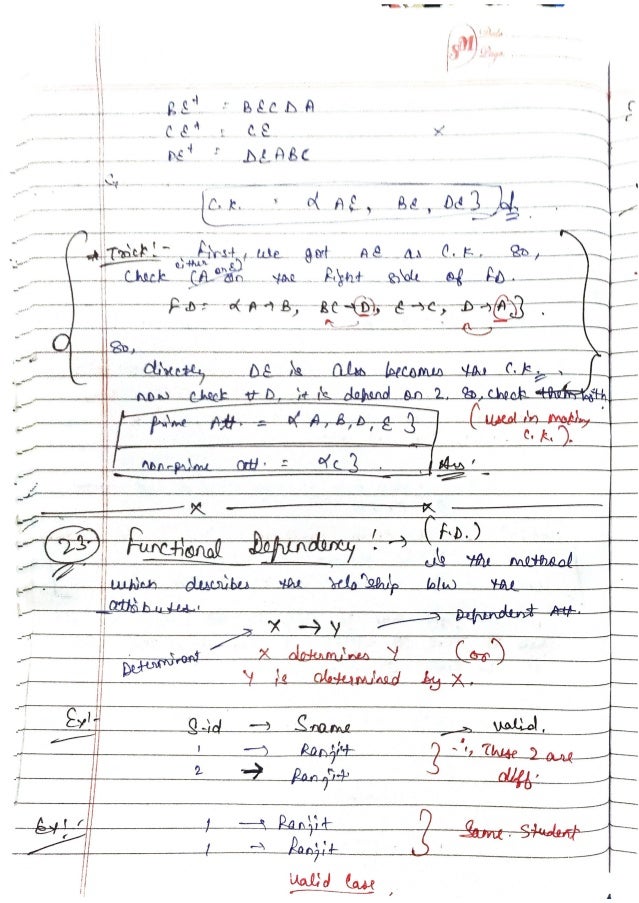 SM Date
Page
BE+ : BECDA
CE+ : CE ×
DE+ : DEABC
C.K. = { AE, BE, DE }
* Trick :- First, we got AE as C.K. So,
check either (A or E) on the Right side of FD.
FD = { A → B, BC → D, E → C, D → A }
So,
directly DE is also becomes the C.K.
now check # D, it is depend on 2. So, check both
prime Att. = { A, B, D, E } (used in making C.K.).
non-prime att. = { C } Ans.
× ×
23. Functional Dependency :→ (F.D.)
is the method
which describes the relaship b/w the
attributes.
X → Y → Dependent Att.
Determinant
X determines Y (or)
Y is determined by X.
Ex:- S-id → Sname → valid.
1 → Ranjit } ∵, These 2 are
2 → Ranjit diff.
Ex:- 1 → Ranjit } Same Student
1 → Ranjit
Valid Case.